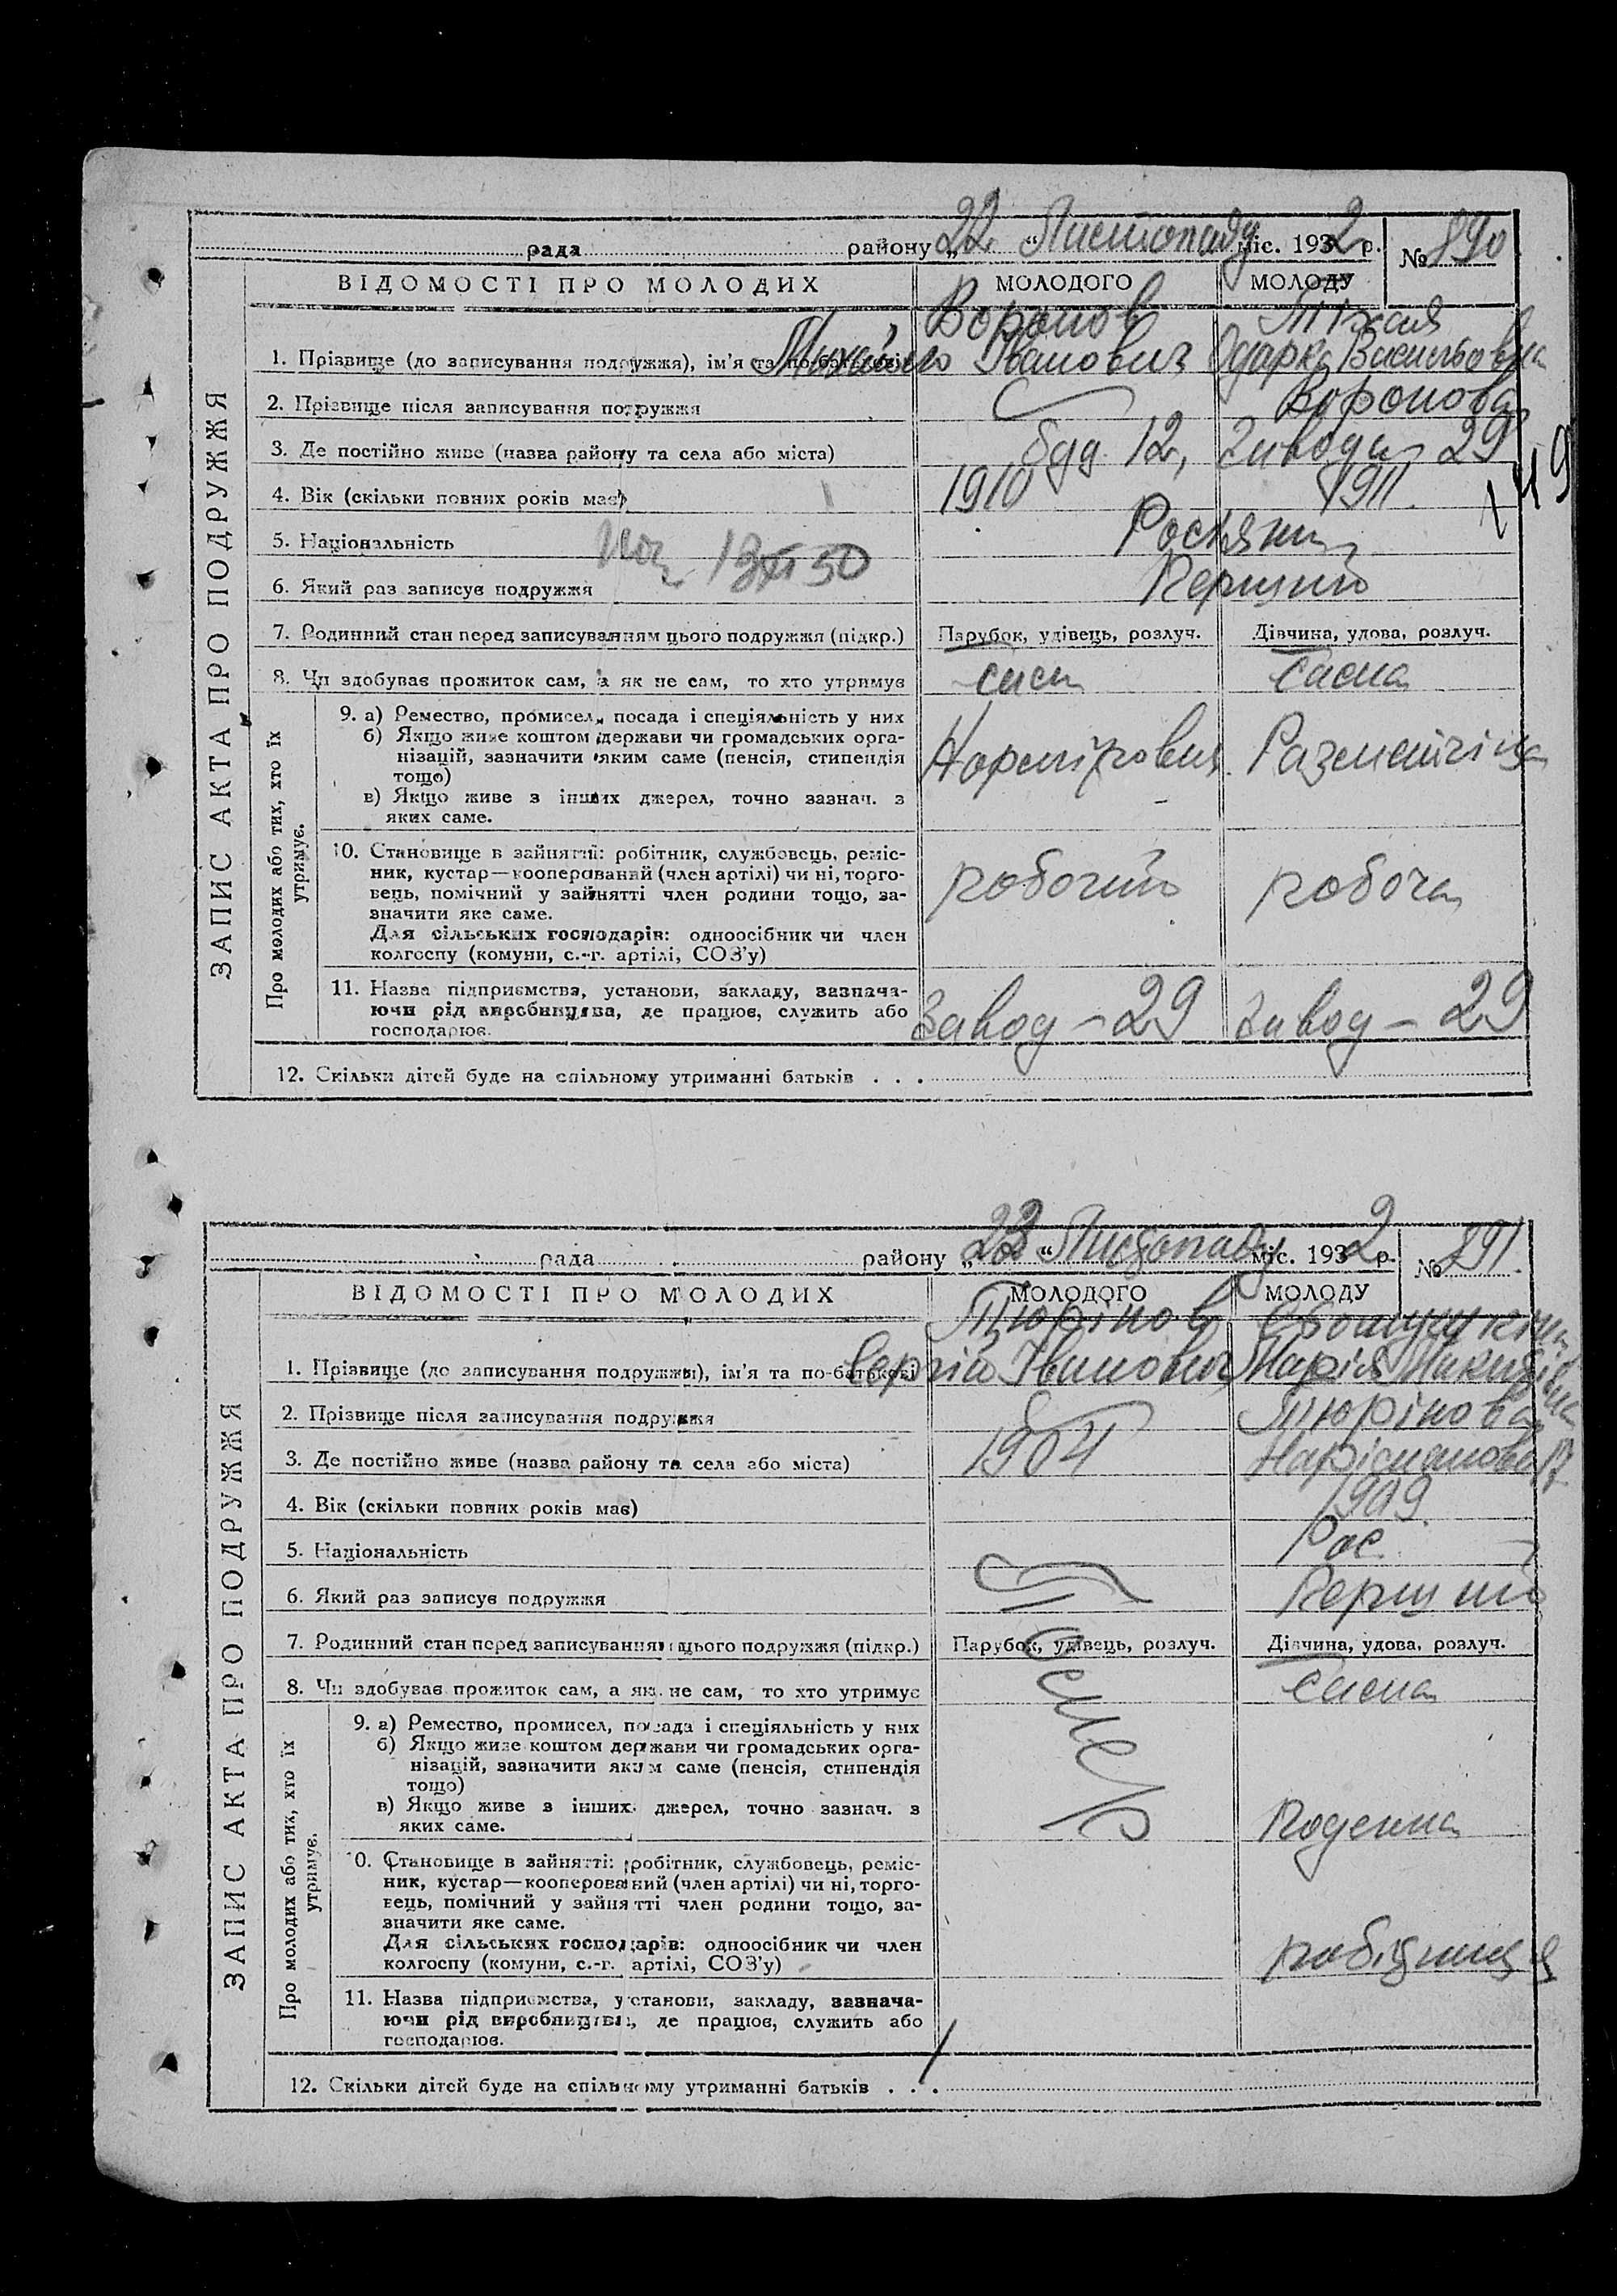 рада району „22“ Листопаду міс. 1932 р. № 890
ВІДОМОСТІ ПРО МОЛОДИХ МОЛОДОГО МОЛОДУ
ЗАПИС АКТА ПРО ПОДРУЖЖЯ
Воронов
1. Прізвище (до записування подружжя), ім'я та по-батькові Михайло Іванович Одарка Васильовна
2. Прізвище після записування подружжя Воронова
3. Де постійно живе (назва району та села або міста) буд 12, Завода 29
149
4. Вік (скільки повних років має) 1910 1911
5. Національність Росіяни
13 XI 50
6. Який раз записує подружжя Перший
7. Родинний стан перед записуванням цього подружжя (підкр.) Парубок, удівець, розлуч. Дівчина, удова, розлуч.
8. Чи здобуває прожиток сам, а як не сам, то хто утримує сам сама
Про молодих або тих, хто їх утримує.
9. а) Ремество, промисел, посада і спеціяльність у них
б) Якщо живе коштом держави чи громадських орга-
нізацій, зазначити яким саме (пенсія, стипендія
тощо)
в) Якщо живе з інших джерел, точно зазнач. з
яких саме.
Норміровщ. Разметчіца
10. Становище в зайнятті: робітник, службовець, реміс-
ник, кустар—кооперований (член артілі) чи ні, торго-
вець, помічний у зайнятті член родини тощо, за-
значити яке саме.
Для сільських господарів: одноосібник чи член
колгоспу (комуни, с.-г. артілі, СОЗ'у)
робочий робоча
11. Назва підприємства, установи, закладу, зазнача-
ючи рід виробництва, де працює, служить або
господарює.
Завод – 29 Завод – 29
12. Скільки дітей буде на спільному утриманні батьків . . .
рада району „23“ Листопаду міс. 1932 р. № 891.
ВІДОМОСТІ ПРО МОЛОДИХ МОЛОДОГО МОЛОДУ
ЗАПИС АКТА ПРО ПОДРУЖЖЯ
Тюрінов
1. Прізвище (до записування подружжя), ім'я та по-батькові Сергій Іванович Марія
2. Прізвище після записування подружжя Тюрінова
3. Де постійно живе (назва району та села або міста) 1904
4. Вік (скільки повних років має) 1909.
5. Національність Рос.
6. Який раз записує подружжя Перший
7. Родинний стан перед записуванням цього подружжя (підкр.) Парубок, удівець, розлуч. Дівчина, удова, розлуч.
Помер
8. Чи здобуває прожиток сам, а як не сам, то хто утримує сама
Про молодих або тих, хто їх утримує.
9. а) Ремество, промисел, посада і спеціяльність у них
б) Якщо живе коштом держави чи громадських орга-
нізацій, зазначити яким саме (пенсія, стипендія
тощо)
в) Якщо живе з інших джерел, точно зазнач. з
яких саме.
Поденна
10. Становище в зайнятті: робітник, службовець, реміс-
ник, кустар—кооперований (член артілі) чи ні, торго-
вець, помічний у зайнятті член родини тощо, за-
значити яке саме.
Для сільських господарів: одноосібник чи член
колгоспу (комуни, с.-г. артілі, СОЗ'у)
робітниця
11. Назва підприємства, установи, закладу, зазнача-
ючи рід виробництва, де працює, служить або
господарює.
12. Скільки дітей буде на спільному утриманні батьків . . .